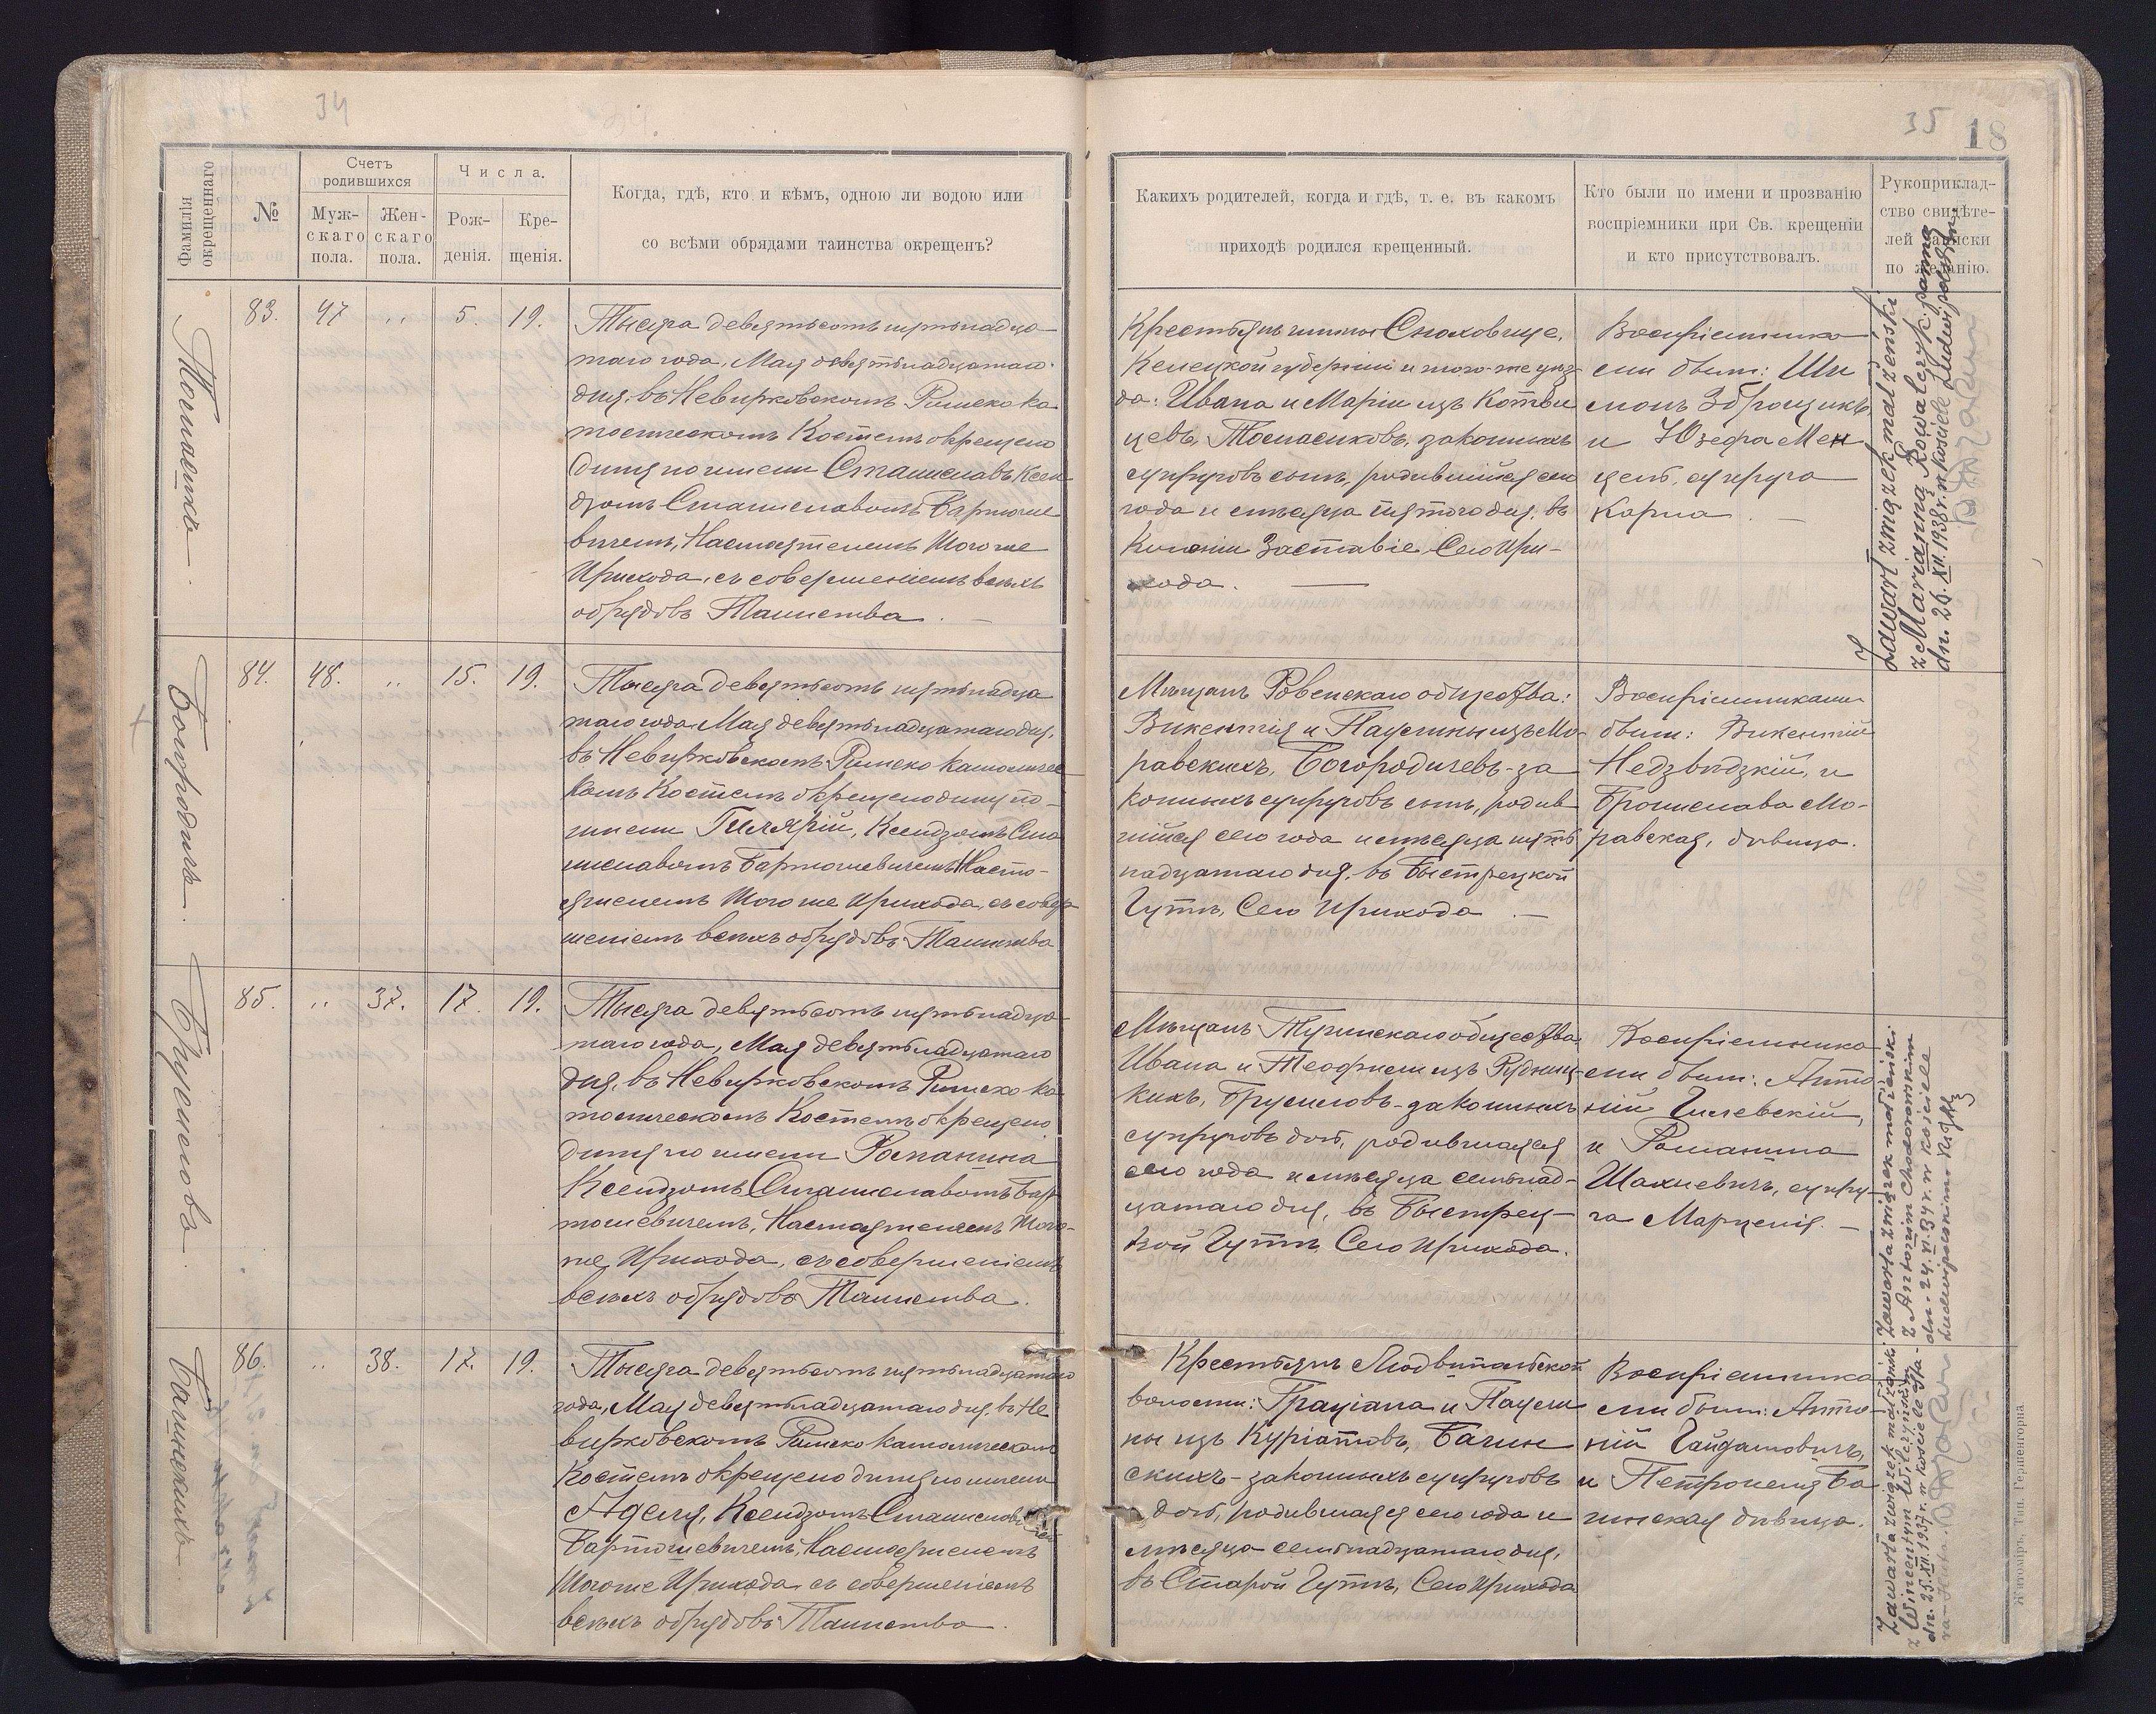 34
Фамилія окрещеннаго
№
Счетъ родившихся
Муж-скаго пола.
Жен-скаго пола.
Числа.
Рож-денія.
Кре-щенія.
Когда, гдѣ, кто и кѣмъ, одною ли водою или
со всѣми обрядами таинства окрещенъ?
Томасикъ
83. 47 „ 5. 19.
Тысяча девятьсотъ пятьнадца-
таго года, Мая девятьнадцатаго
дня, въ Невирковскомъ Римско ка
толическомъ Костелѣ окрещено
дитя по имени Станиславъ Ксен
дзомъ Станиславомъ Бартоше
вичемъ, Настоятелемъ того же
Прихода, съ совершеніемъ всѣхъ
обрядовъ Таинства.
Богородичъ
84. 48. „ 15. 19.
Тысяча девятьсотъ пятьнадца
таго года Мая девятьнадцатаго дня,
въ Невирковскомъ Римско католичес
комъ Костелѣ окрещено дитя по-
имени Гилярій, Ксендзомъ Ста
ниславомъ Бартошевичемъ Насто-
ятелемъ того же Прихода, съ совер
шеніемъ всѣхъ обрядовъ Таинства
Брусилова
85. „ 37. 17. 19.
Тысяча девятьсотъ пятьнадца-
таго года, Мая девятьнадцатаго
дня, въ Невирковскомъ Римско ка-
толическомъ Костелѣ окрещено
дитя по имени Романина
Ксендзомъ Станиславомъ Бар
тошевичемъ, Настоятелемъ того-
же Прихода, съ совершеніемъ
всѣхъ обрядовъ Таинства.
86. „ 38. 17. 19.
Тысяча девятьсотъ пятьнадцатаго
года, Мая девятьнадцатаго дня, въ Не
вирковскомъ Римско католическомъ
Костелѣ окрещено дитя по имени
Аделя, Ксендзомъ Станиславомъ
Бартошевичемъ, Настоятелемъ
того же Прихода съ совершеніемъ
всѣхъ обрядовъ Таинства.
35
18
Какихъ родителей, когда и гдѣ, т. е. въ какомъ
приходѣ родился крещенный.
Кто были по имени и прозванію
воспріемники при Св. крещеніи
и кто присутствовалъ.
Рукоприклад-
ство свидѣте-
лей записки
по желанію.
Крестьянъ гмины Сноховице,
Келецкой губерніи и того-же уѣз-
да: Ивана и Маріи изъ Котви
цевъ, Томасиковъ, законныхъ
супруговъ сынъ, родившійся сего
года и мѣсяца пятого дня, въ
Колоніи Заставіе, Сего При-
хода.
Воспріемника-
ми были: Ши
монъ Зброщикъ
и Юзефа Мен
цель, супруга
Карла.
Zawarł związek małżeński
z Marianną Kowalczyk panną
dn. 26. XII. 1938 r. w kościele Ludwipolskim
Мѣщанъ Ровенскаго общества:
Викентія и Паулины изъ Мо-
равскихъ, Богородичевъ-за
конныхъ супруговъ сынъ, родив
шійся сего года и мѣсяца пять
надцатаго дня, въ Быстрецкой
Гутѣ, Сего Прихода.
Воспріемниками
были: Викентій
Недзвѣдзкій, и
Брониславa Мо-
равская, дѣвица.
Ивана и Теофили изъ Рудниц-
кихъ, Брусиловъ-законныхъ
супруговъ дочь, родившаяся
сего года и мѣсяца семьнад-
цатаго дня, въ Быстрец-
кой Гутѣ, Сего Прихода.
Воспріемника
ми были: Анто-
ній Гилевскій,
и Романина
Шахневичъ, супру-
га Марцелія.
Zawarła związek małżeński
z Antonim Chodorowskim
dn. 24. VI. 34 r. w kościele
Ludwipolskim
Крестьянъ Людвипольской
волости: Граціана и Паули
ны изъ Куріатовъ, Багин
скихъ-законныхъ супруговъ
дочь, родившаяся сего года и
мѣсяца семьнадцатаго дня,
въ Старой Гутѣ, Сего Прихода
Воспріемника
ми были: Анто-
ній Гайдамовичъ,
и Петронеля Ба
гинская дѣвица.
Zawarła związek małżeński
z Wincentym Wilczyńskim
dn. 25. XII. 1937 r. w kościele Sta-
ra-Huta.
Житоміръ, Тип. Гершенгорна